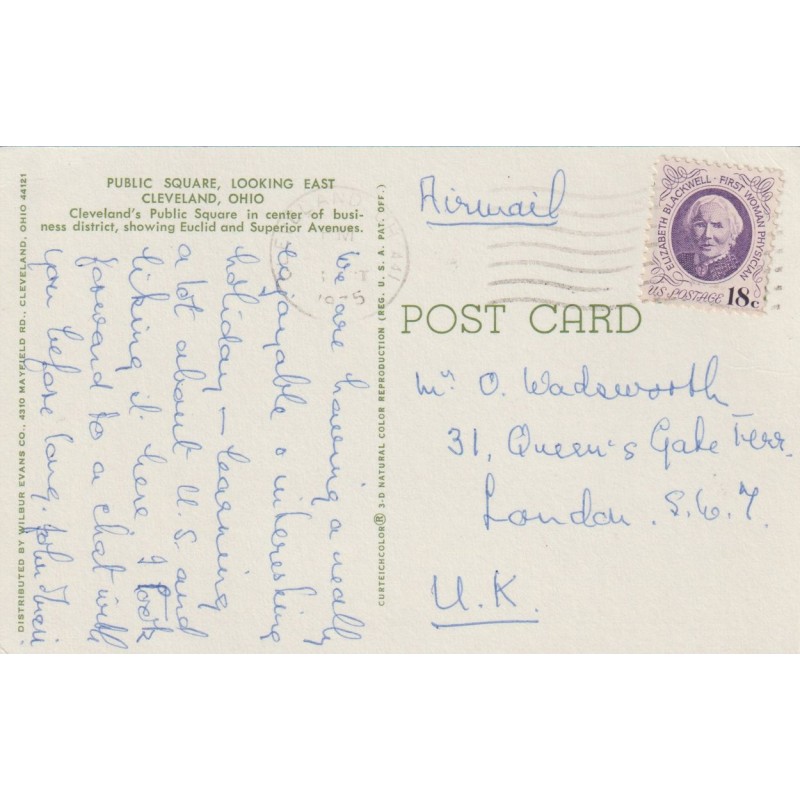 PUBLIC SQUARE, LOOKING EAST
CLEVELAND, OHIO
Cleveland's Public Square in center of busi-
ness district, showing Euclid and Superior Avenues.
We are having a really
enjoyable & interesting
holiday — learning
a lot about U.S. and
liking it here I look
foreward to a chat with
you before long. John
DISTRIBUTED BY WILBUR EVANS CO., 4310 MAYFIELD RD., CLEVELAND, OHIO 44121
CURTEICHCOLOR® 3-D NATURAL COLOR REPRODUCTION (REG. U. S. A. PAT. OFF.)
Airmail
ELIZABETH BLACKWELL · FIRST WOMAN PHYSICIAN
US POSTAGE 18c
POST CARD
O. Wadsworth
31, Queen's Gate Terr.
London. S.W.7.
U.K.